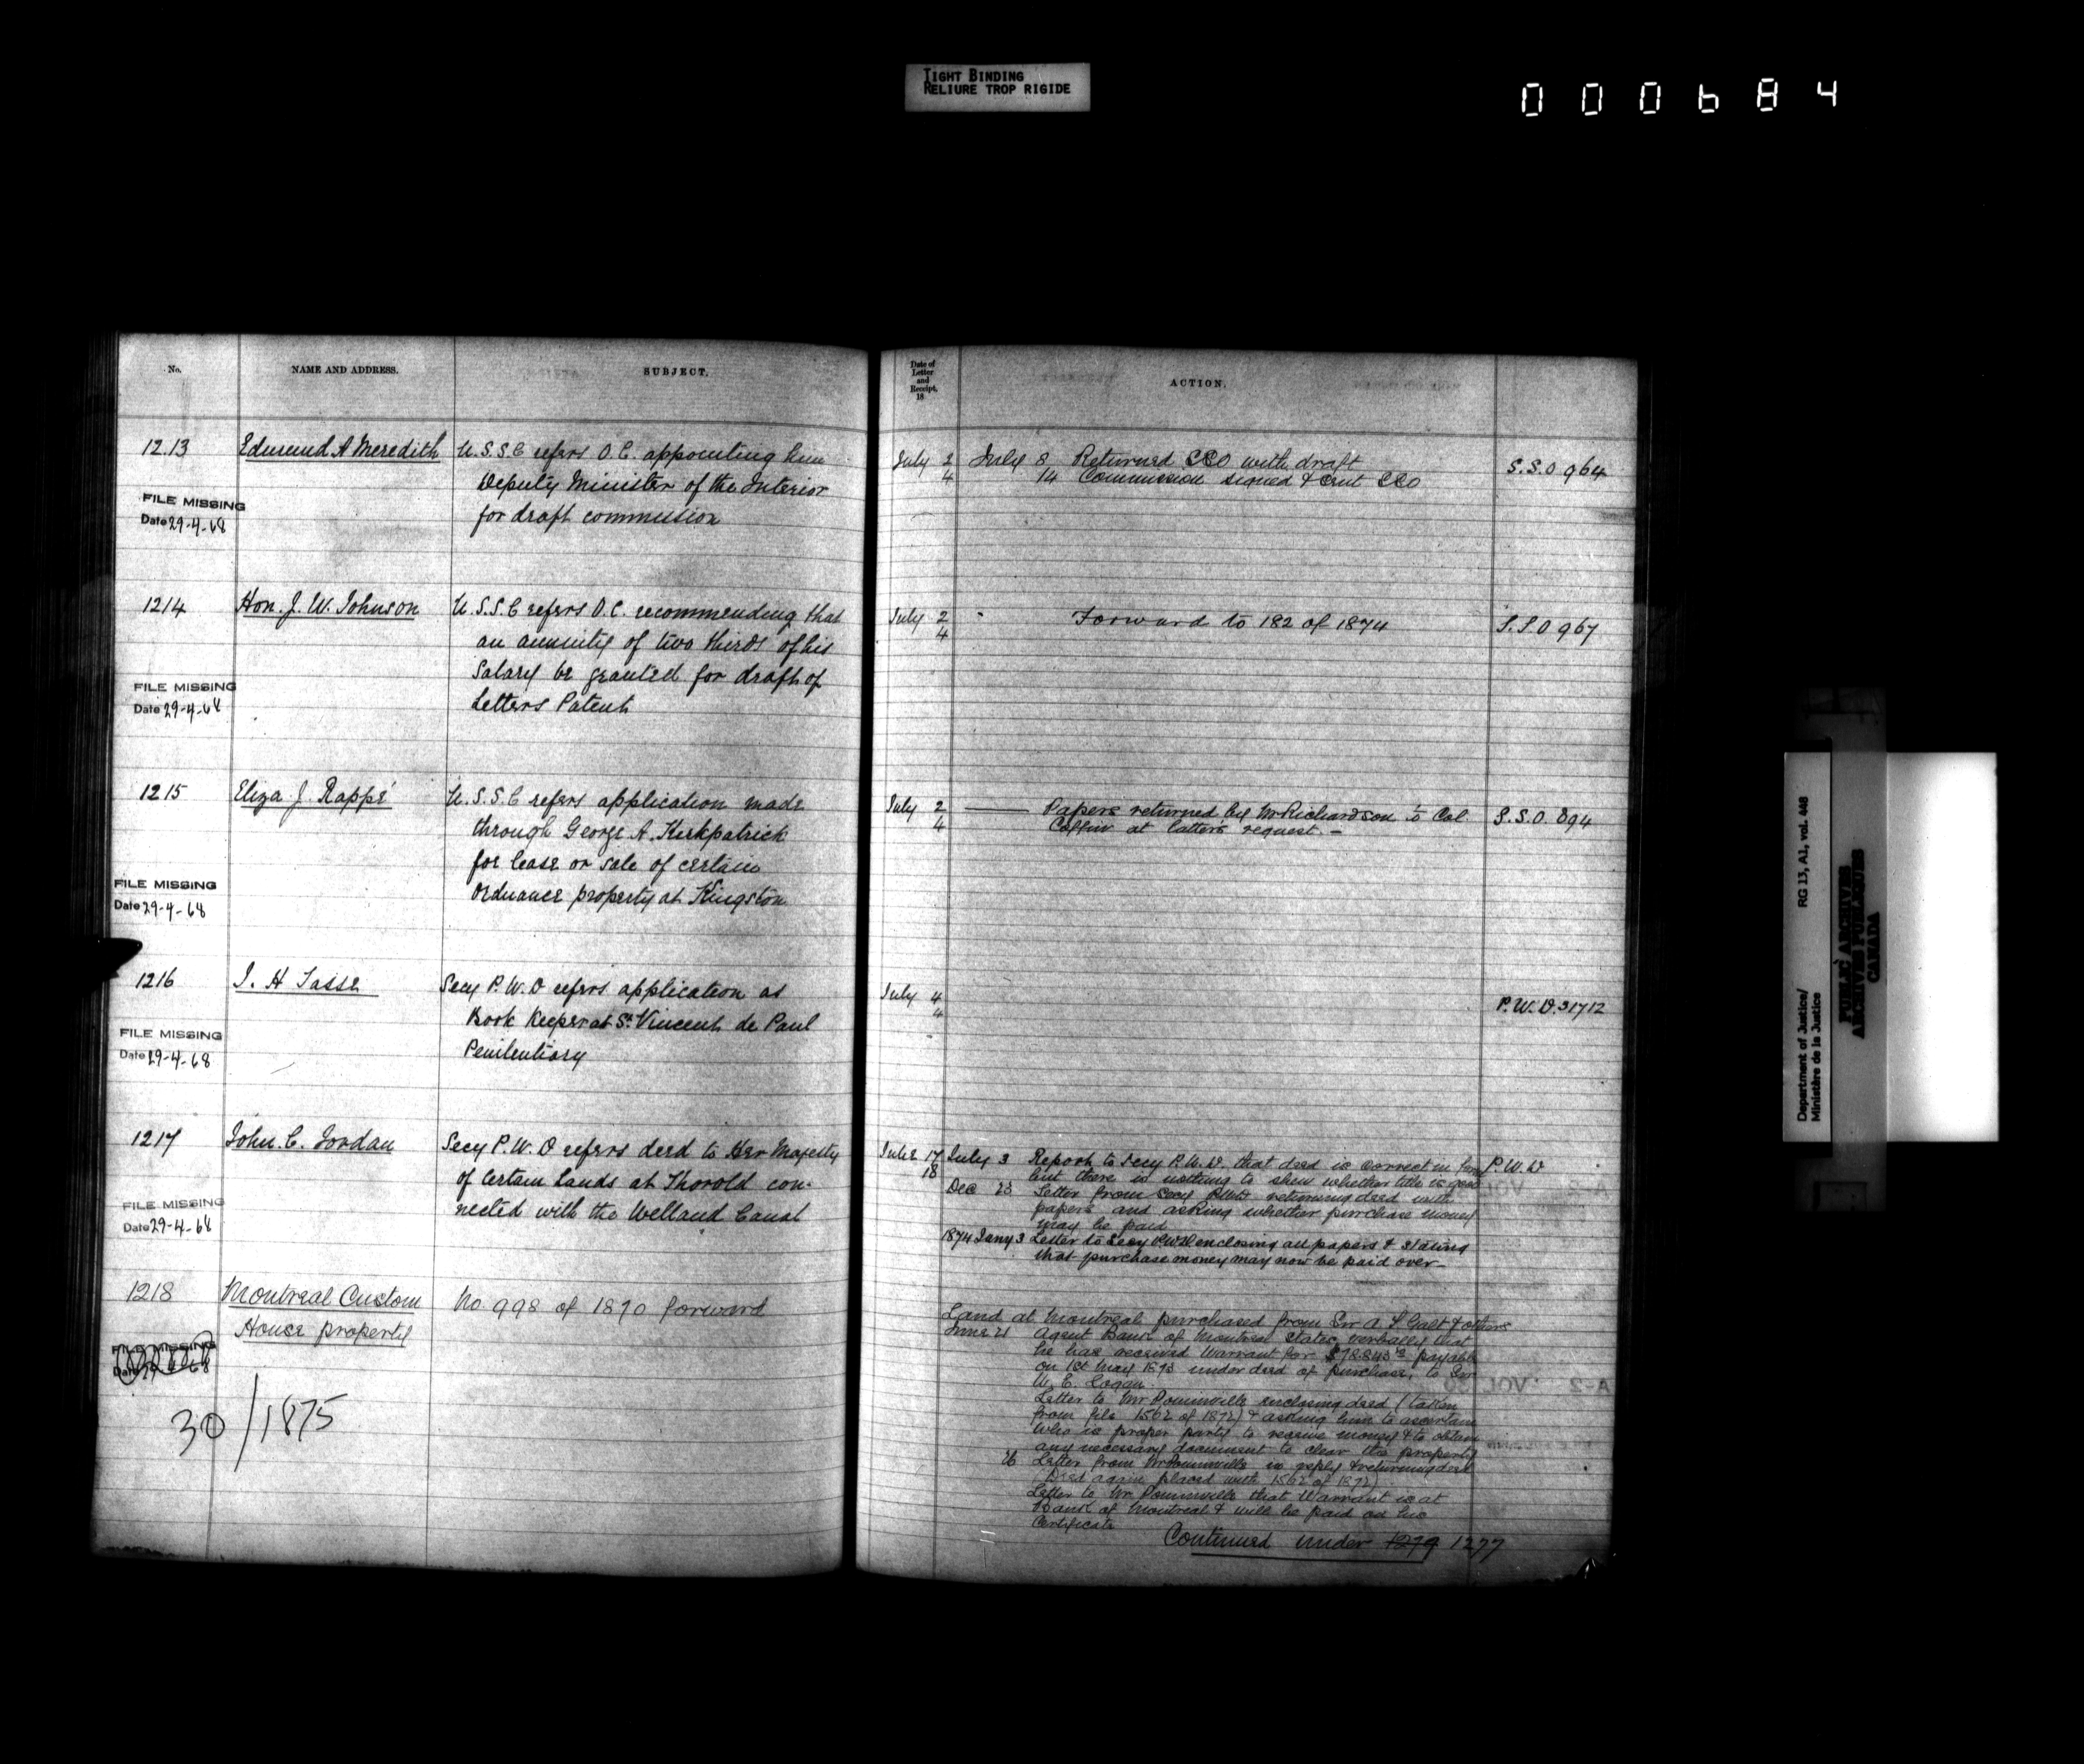 TIGHT BINDING
RELIURE TROP RIGIDE
000684
No.
NAME AND ADDRESS.
SUBJECT.
1213
Edmund A Meredith
U.S.S.C refers O.C. appointing him
Deputy Minister of the Interior
for draft commission
FILE MISSING
Date 29-4-68
1214
Hon. J. W. Johnson
U.S.S.C refers O.C. recommending that
an annuity of two thirds of his
Salary be granted for draft of
Letters Patent
FILE MISSING
Date 29-4-68
1215
Eliza J. Rappé
U.S.S.C refers application made
through George A. Kirkpatrick
for lease or sale of certain
Ordnance property at Kingston
FILE MISSING
Date 29-4-68
1216
J. H Tasse
Secy P.W.D refers application as
Book Keeper at St Vincent de Paul
Penitentiary
FILE MISSING
Date 29-4-68
1217
John. C. Jordan
Secy P.W.D refers deed to Her Majesty
of Certain Lands at Thorold con-
nected with the Welland Canal
FILE MISSING
Date 29-4-68
1218
Montreal Custom
House property
No. 998 of 1870 forward
FILE MISSING
Date 29-4-68
30/1875
Date of
Letter
and
Receipt,
18
ACTION.
July 2
4
July 8 Returned with draft
14 Commission signed &
S.S.O 964
July 2
4
Forward to 182 of 1874
S.S.O 967
July 2
4
Papers returned by Mr Richardson to Col.
Coffin at latter's request. -
S.S.O. 894
July 4
4
P.W.D. 31712
June 17
18
July 3 Report to Secy P.W.D. that deed is correct in form
but there is nothing to shew whether title is good
P.W.D
Dec 23 Letter from Secy P.W.D. returning deed with
papers and asking whether purchase money
may be paid
1874 Jany 3 Letter to Secy P.W.D enclosing all papers & stating
that purchase money may now be paid over-
Land at Montreal purchased from Sir A T Galt & others
June 21 Agent Bank of Montreal states verbally that
he has received Warrant for payable
on 1st May 1873 under deed of purchase, to Sir
W. E. Logan.
Letter to Mr Dominville enclosing deed (taken
from file 1562 of 1872) & asking him to ascertain
who is proper party to receive money & to obtain
any necessary document to clear the property
26 Letter from Mr Dominville in reply & returning deed
(Deed again placed with 1562 of 1872)
Letter to Mr Dominville that Warrant is at
Bank of Montreal & will be paid on his
Certificate
Continued under 1279 1277
Department of Justice/
Ministère de la Justice
RG 13, A1, vol. 446
PUBLIC ARCHIVES
ARCHIVES PUBLIQUES
CANADA